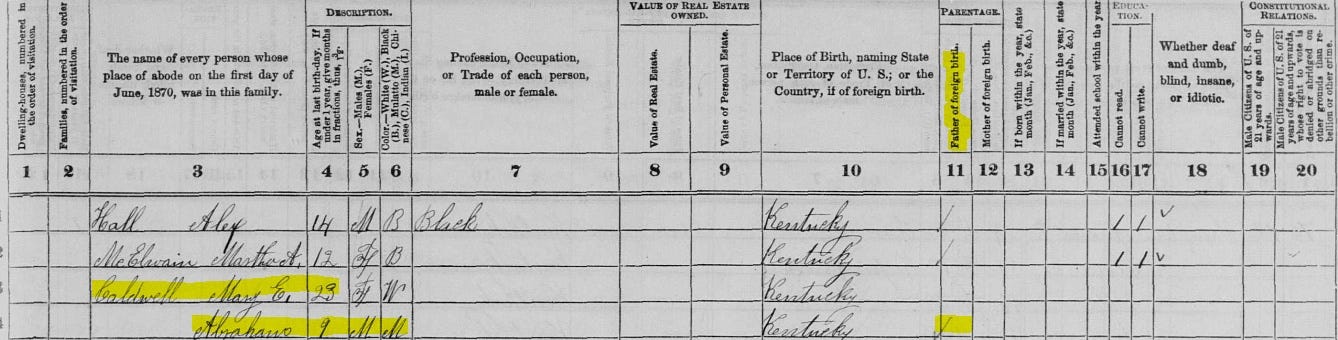 DESCRIPTION.
VALUE OF REAL ESTATE OWNED.
PARENTAGE.
EDUCATION.
CONSTITUTIONAL RELATIONS.
Dwelling-houses, numbered in the order of visitation.
Families, numbered in the order of visitation.
The name of every person whose place of abode on the first day of June, 1870, was in this family.
Age at last birth-day. If under 1 year, give months in fractions, thus, 3/12.
Sex.—Males (M.), Females (F.)
Color.—White (W.), Black (B.), Mulatto (M.), Chinese (C.), Indian (I.)
Profession, Occupation, or Trade of each person, male or female.
Value of Real Estate.
Value of Personal Estate.
Place of Birth, naming State or Territory of U. S.; or the Country, if of foreign birth.
Father of foreign birth.
Mother of foreign birth.
If born within the year, state month (Jan., Feb., &c.)
If married within the year, state month (Jan., Feb., &c.)
Attended school within the year.
Cannot read.
Cannot write.
Whether deaf and dumb, blind, insane, or idiotic.
Male Citizens of U. S. of 21 years of age and upwards.
Male Citizens of U. S. of 21 years of age and upwards, whose right to vote is denied or abridged on other grounds than rebellion or other crime.
1 2 3 4 5 6 7 8 9 10 11 12 13 14 15 16 17 18 19 20
Hall Alex 14 M B Black Kentucky / / /
McElwain Martha A. 12 F B Kentucky / / /
Caldwell Mary E. 23 F W Kentucky
Abraham 9 M M Kentucky /